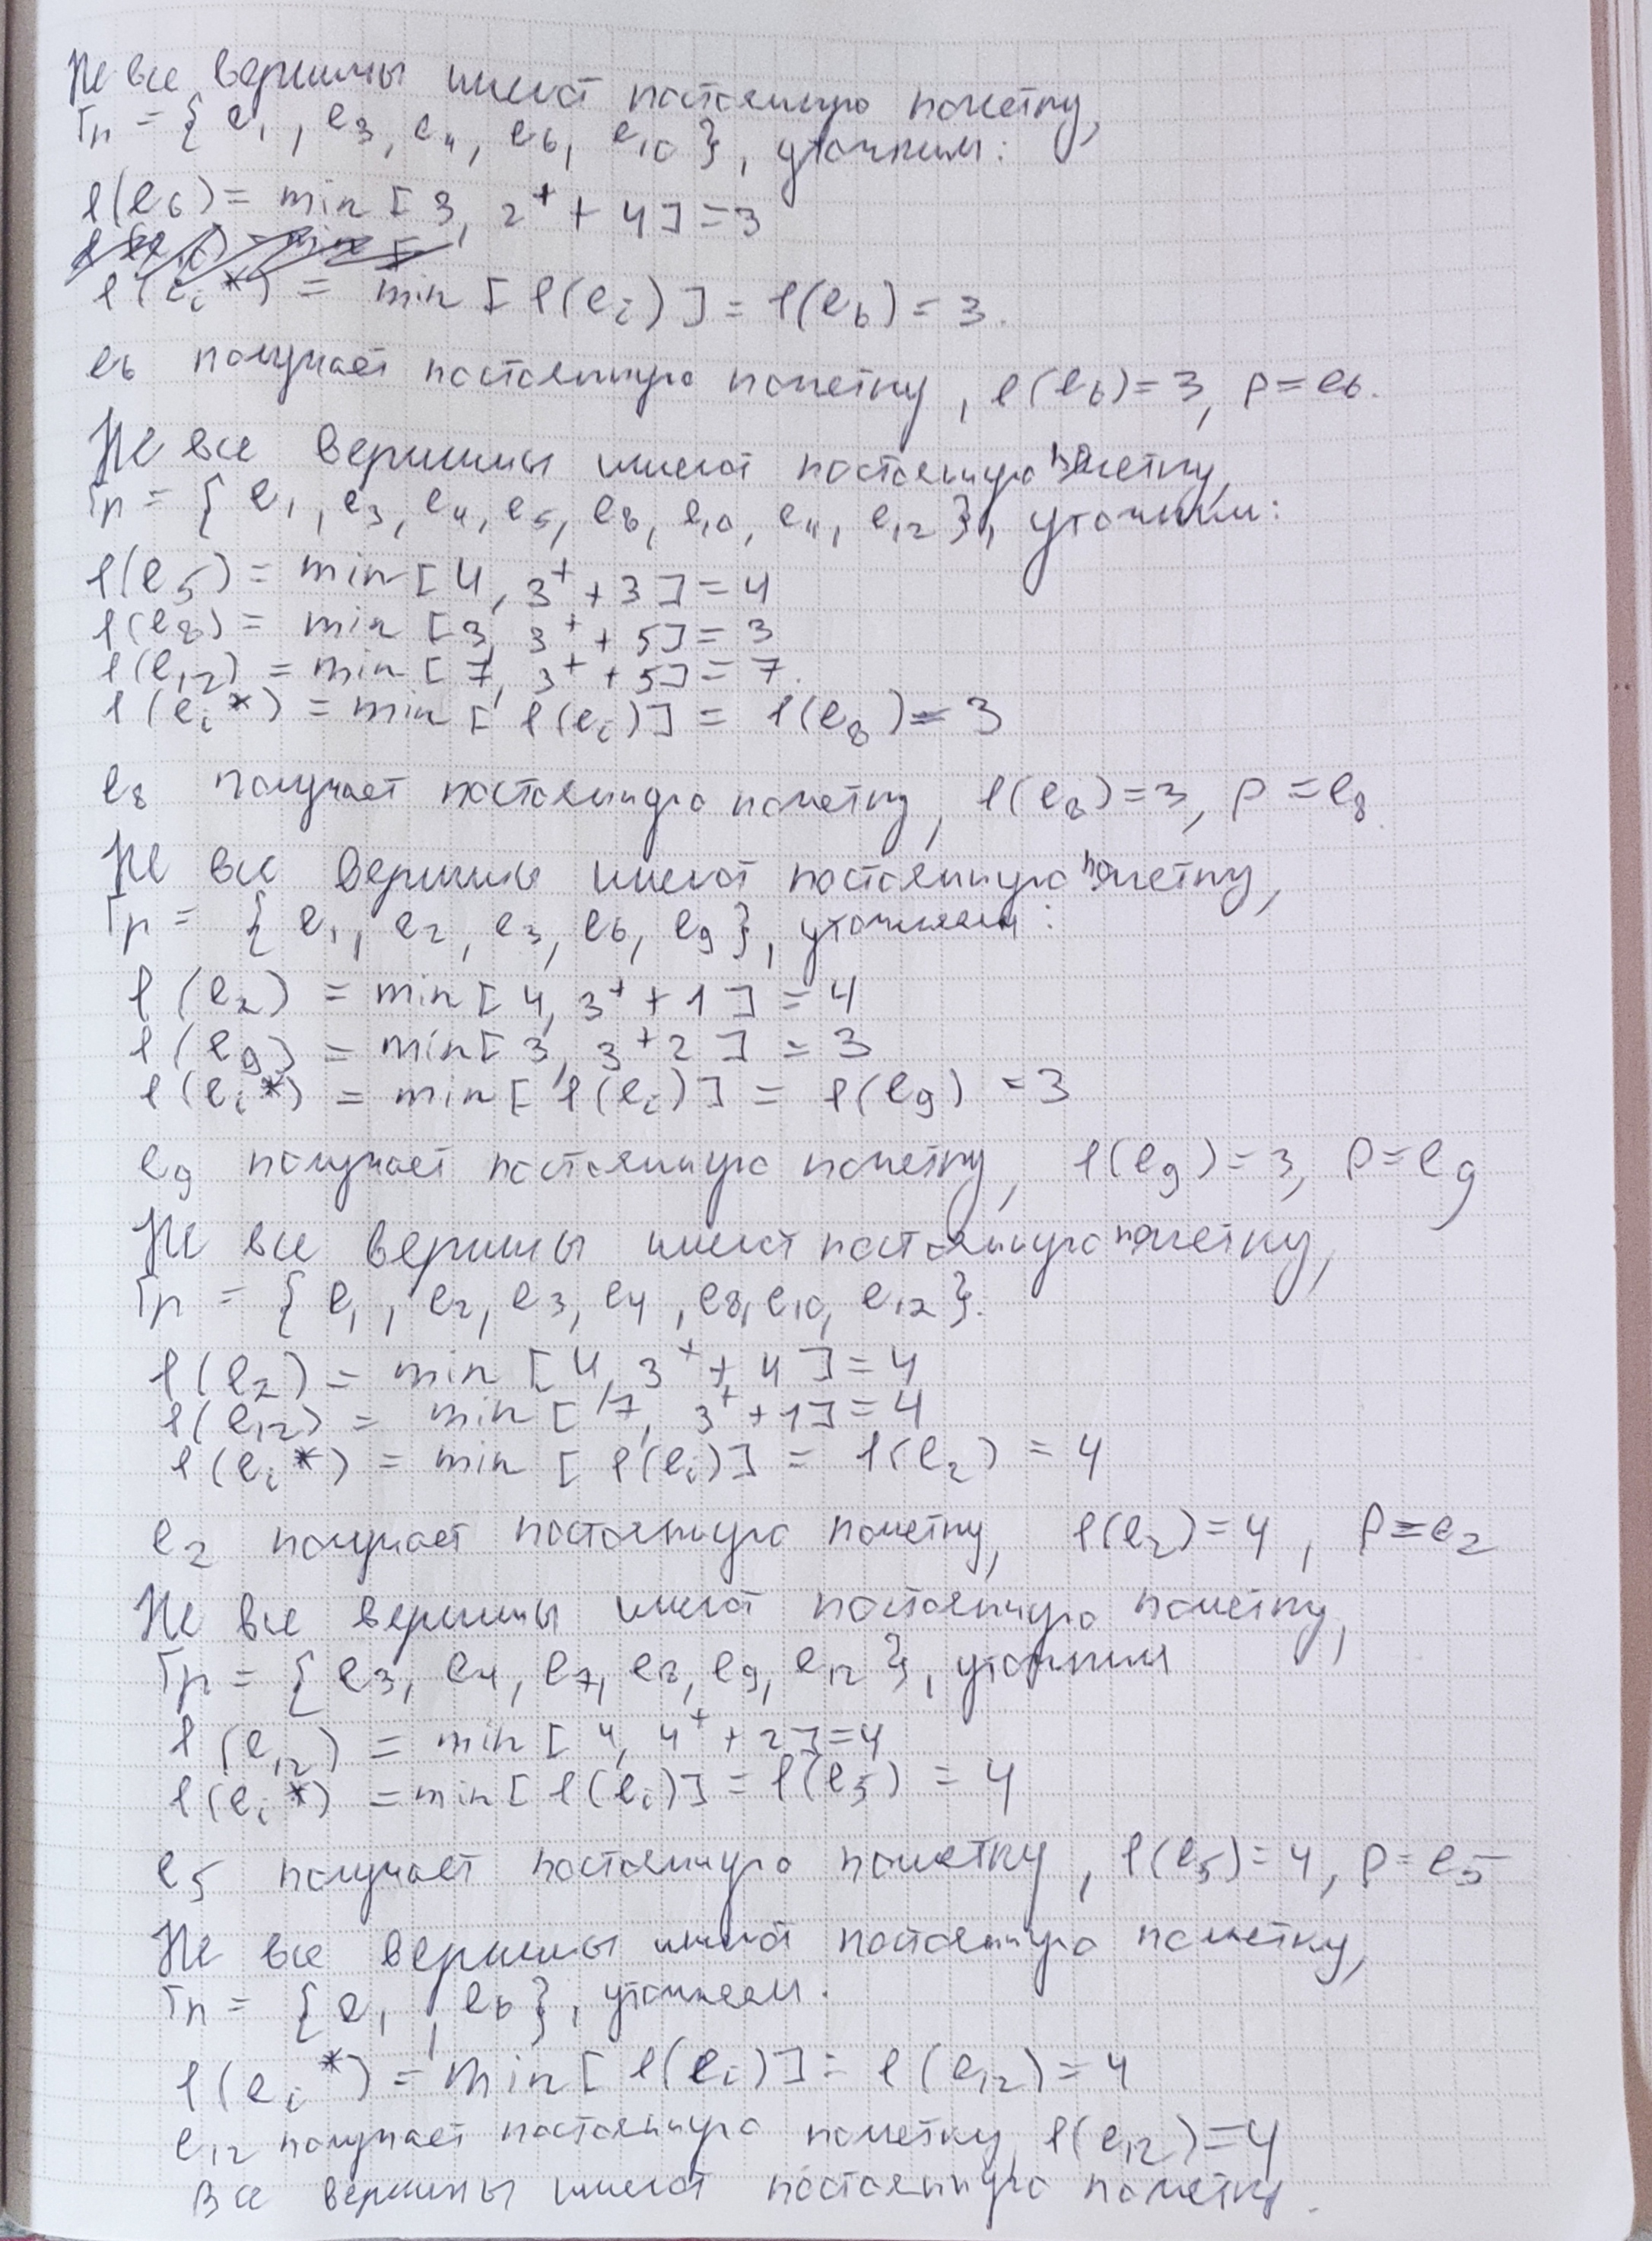 Не все вершины имеют постоянную пометку,
Гp = {e1, e3, e4, e6, e10}, уточним:
l(e6) = min [3, 2⁺ + 4] = 3
l(ei*) = min [l(ei)] = l(e6) = 3.
e6 получает постоянную пометку, l(e6) = 3, p = e6.
Не все вершины имеют постоянную пометку,
Гp = {e1, e3, e4, e5, e8, e10, e11, e12}, уточним:
l(e5) = min [4, 3⁺ + 3] = 4
l(e8) = min [3, 3⁺ + 5] = 3
l(e12) = min [7, 3⁺ + 5] = 7.
l(ei*) = min [l(ei)] = l(e8) = 3
e8 получает постоянную пометку, l(e8) = 3, p = e8.
Не все вершины имеют постоянную пометку,
Гp = {e1, e2, e3, e6, e9}, уточняем:
l(e2) = min [4, 3⁺ + 1] = 4
l(e9) = min [3, 3⁺ 2] = 3
l(ei*) = min [l(ei)] = l(e9) = 3
e9 получает постоянную пометку, l(e9) = 3, p = e9
Не все вершины имеют постоянную пометку,
Гp = {e1, e2, e3, e4, e8, e10, e12}.
l(e2) = min [4, 3⁺ + 4] = 4
l(e12) = min [7, 3⁺ + 1] = 4
l(ei*) = min [l(ei)] = l(e2) = 4
e2 получает постоянную пометку, l(e2) = 4, p = e2
Не все вершины имеют постоянную пометку,
Гp = {e3, e4, e7, e8, e9, e12}, уточним
l(e12) = min [4, 4⁺ + 2] = 4
l(ei*) = min [l(ei)] = l(e5) = 4
e5 получает постоянную пометку, l(e5) = 4, p = e5
Не все вершины имеют постоянную пометку,
Гp = {e1, e6}, уточняем.
l(ei*) = min [l(ei)] = l(e12) = 4
e12 получает постоянную пометку, l(e12) = 4
Все вершины имеют постоянную пометку.